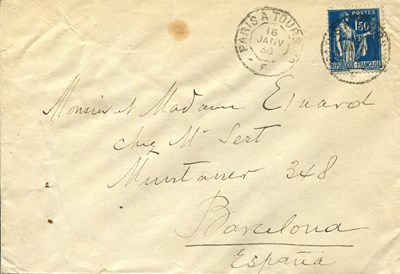 PARIS A TOURS
16
JANV
36
POSTES
1F50
REPUBLIQUE FRANÇAISE
Monsieur et Madame Eluard
chez Mr Sert
Muntaner 348
Barcelona
España